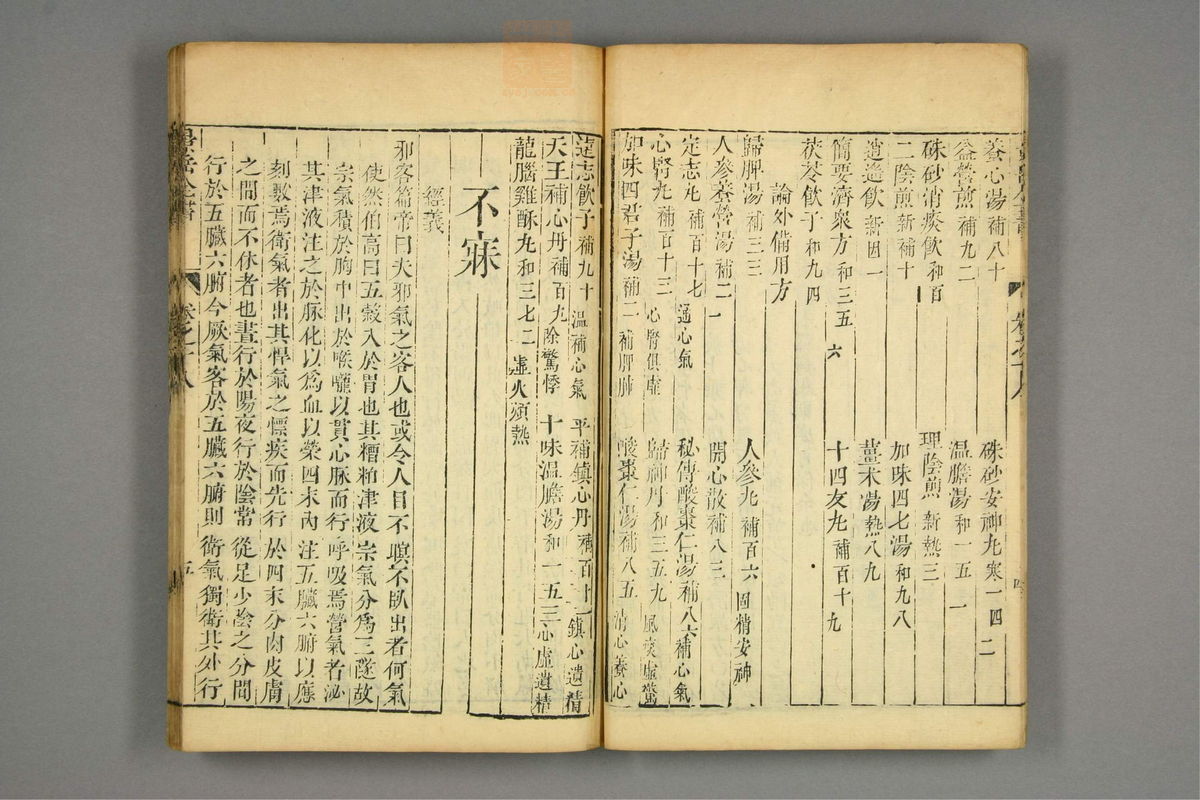 養心湯補八十
硃砂安神丸寒一四二
益營煎補九二
溫膽湯和一五一
硃砂消痰飲和百一
理陰煎新熱三
二陰煎新補十
加味四七湯和九八
逍遙飲新因一
薑朮湯熱八九
簡要濟衆方和三五六
十四友丸補百十九
茯苓飲子和九四
論外備用方
歸脾湯補三三
人參丸補百六固精安神
人參養營湯補二一
開心散補八三
定志丸補百十七通心氣
秘傳酸棗仁湯補八六補心氣
心腎丸補百十三心腎俱虛
歸神丹和三五九風痰虛驚
加味四君子湯補二補脾肺
酸棗仁湯補八五清心養心
遠志飲子補九十溫補心氣
平補鎮心丹補百十一鎮心遺精
天王補心丹補百九除驚悸
十味溫膽湯和一五三心虛遺精
龍腦雞酥丸和三七二虛火煩熱
不寐
經義
邪客篇帝曰夫邪氣之客人也或令人目不瞑不臥出者何氣
使然伯高曰五穀入於胃也其糟粕津液宗氣分爲三隧故
宗氣積於胸中出於喉嚨以貫心脉而行呼吸焉營氣者泌
其津液注之於脉化以爲血以榮四末內注五臟六腑以應
刻數焉衛氣者出其悍氣之慓疾而先行於四末分肉皮膚
之間而不休者也晝行於陽夜行於陰常從足少陰之分間
行於五臟六腑今厥氣客於五臟六腑則衛氣獨衛其外行
景岳全書
卷之十八
五